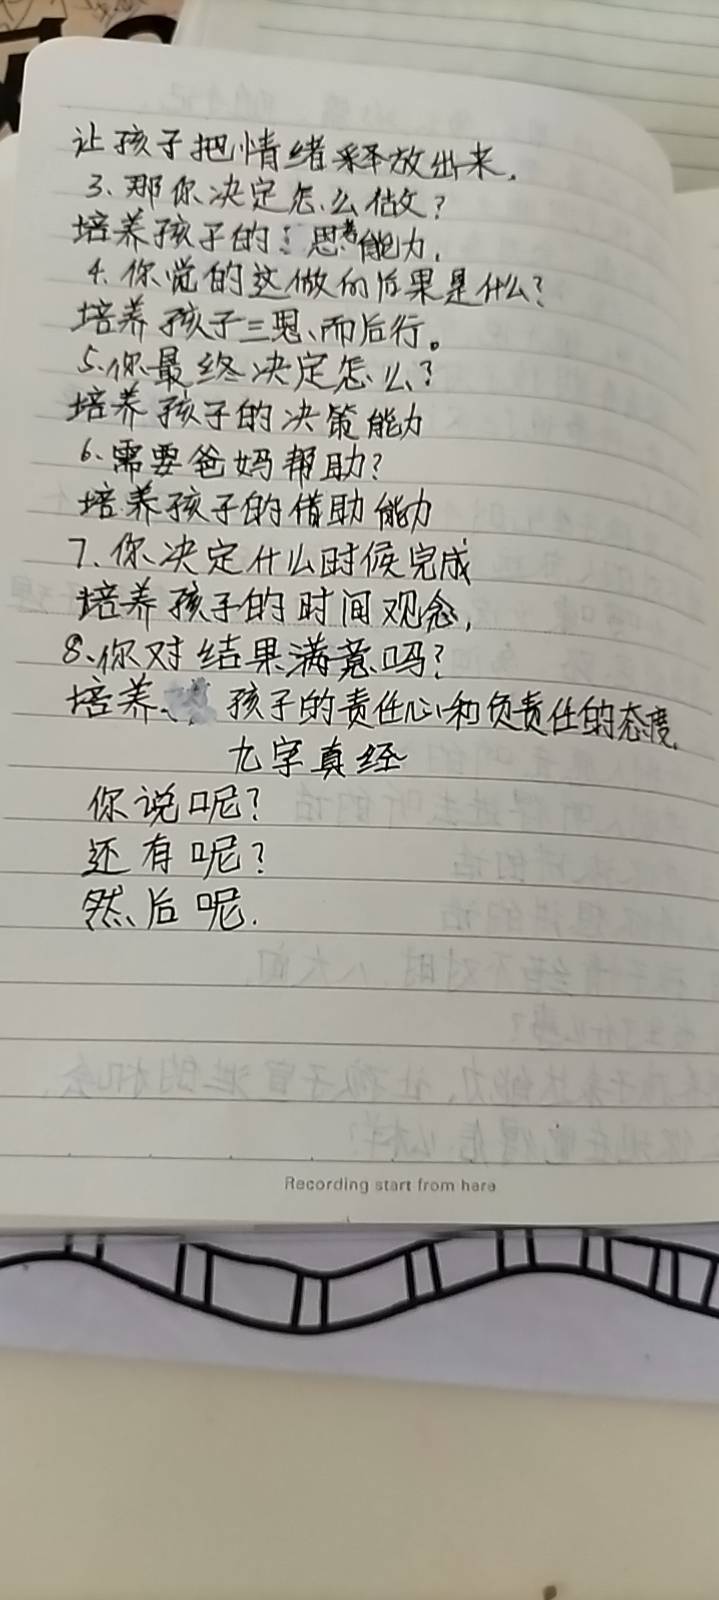 让孩子把情绪释放出来.
3、那你决定怎么做?
培养孩子的:思考能力,
4.你觉的这做的后果是什么?
培养孩子三思、而后行。
5.你最终决定怎么?
培养孩子的决策能力
6、需要爸妈帮助?
培养孩子的借助能力
7、你决定什么时候完成
培养孩子的时间观念,
8、你对结果满意吗?
培养、孩子的责任心和负责任的态度.
九字真经
你说呢?
还有呢?
然后呢.
Recording start from here